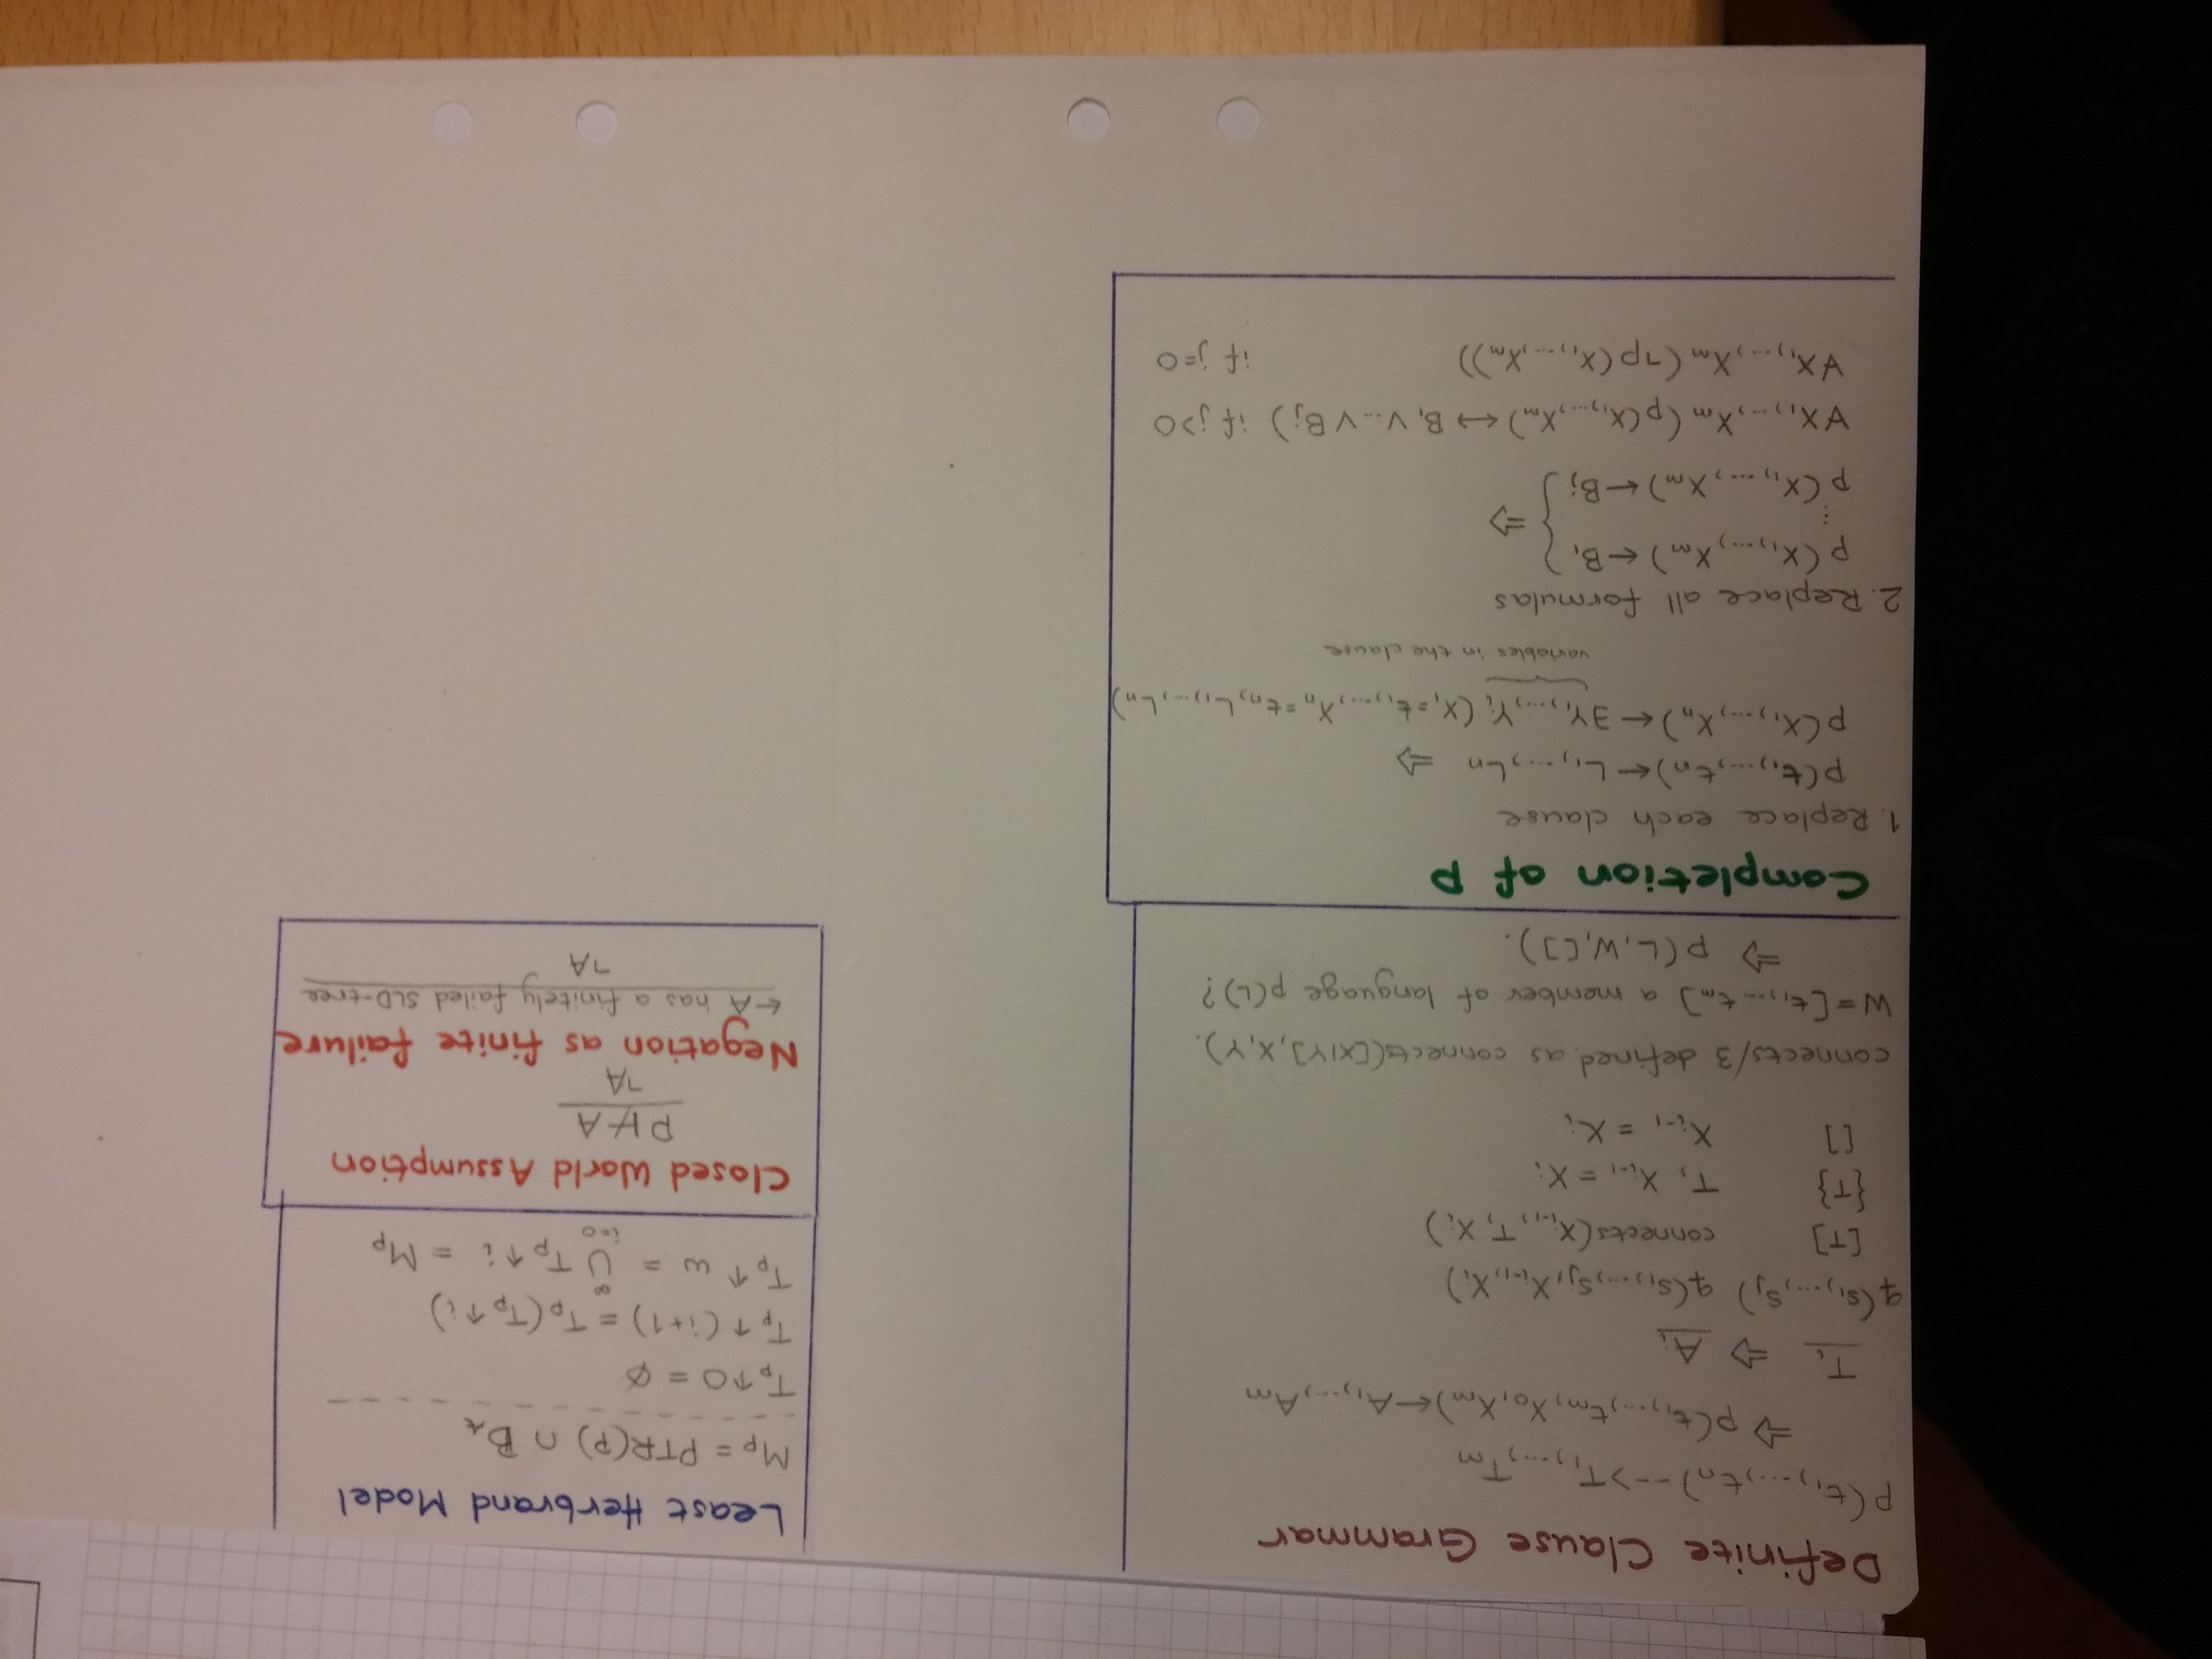 Definite Clause Grammar
p(t₁,...,tn) --> T₁,...,Tm
⇒ p(t₁,...,tm, X₀, Xm) ← A₁,...,Am
Tᵢ ⇒ Aᵢ
q(s₁,...,sⱼ) q(s₁,...,sⱼ, Xᵢ₋₁, Xᵢ)
[T] connects(Xᵢ₋₁, T, Xᵢ)
{T} T, Xᵢ₋₁ = Xᵢ
[] Xᵢ₋₁ = Xᵢ
connects/3 defined as connects([X|Y],X,Y).
W=[t₁,...tm] a member of language p(L)?
⇒ p(L,W,[]).
Completion of P
1. Replace each clause
p(t₁,...,tn) ← L₁,...,Ln ⇒
p(X₁,...,Xn) ← ∃Y₁,...,Yᵢ (X₁=t₁,...,Xn=tn, L₁,...,Ln)
variables in the clause
2. Replace all formulas
p(X₁,...,Xm) ← B₁
⋮ } ⇒
p(X₁,...,Xm) ← Bⱼ
∀X₁,...,Xm (p(X₁,...,Xm) ↔ B₁ ∨...∨ Bⱼ) if j>0
∀X₁,...,Xm (¬p(X₁,...,Xm)) if j=0
Least Herbrand Model
Mp = PTR(P) ∩ B
Tp↑0 = ∅
Tp↑(i+1) = Tp(Tp↑i)
Tp↑ω = ⋃ᵢ₌₀^∞ Tp↑i = Mp
Closed World Assumption
P⊬A
¬A
Negation as finite failure
←A has a finitely failed SLD-tree
¬A